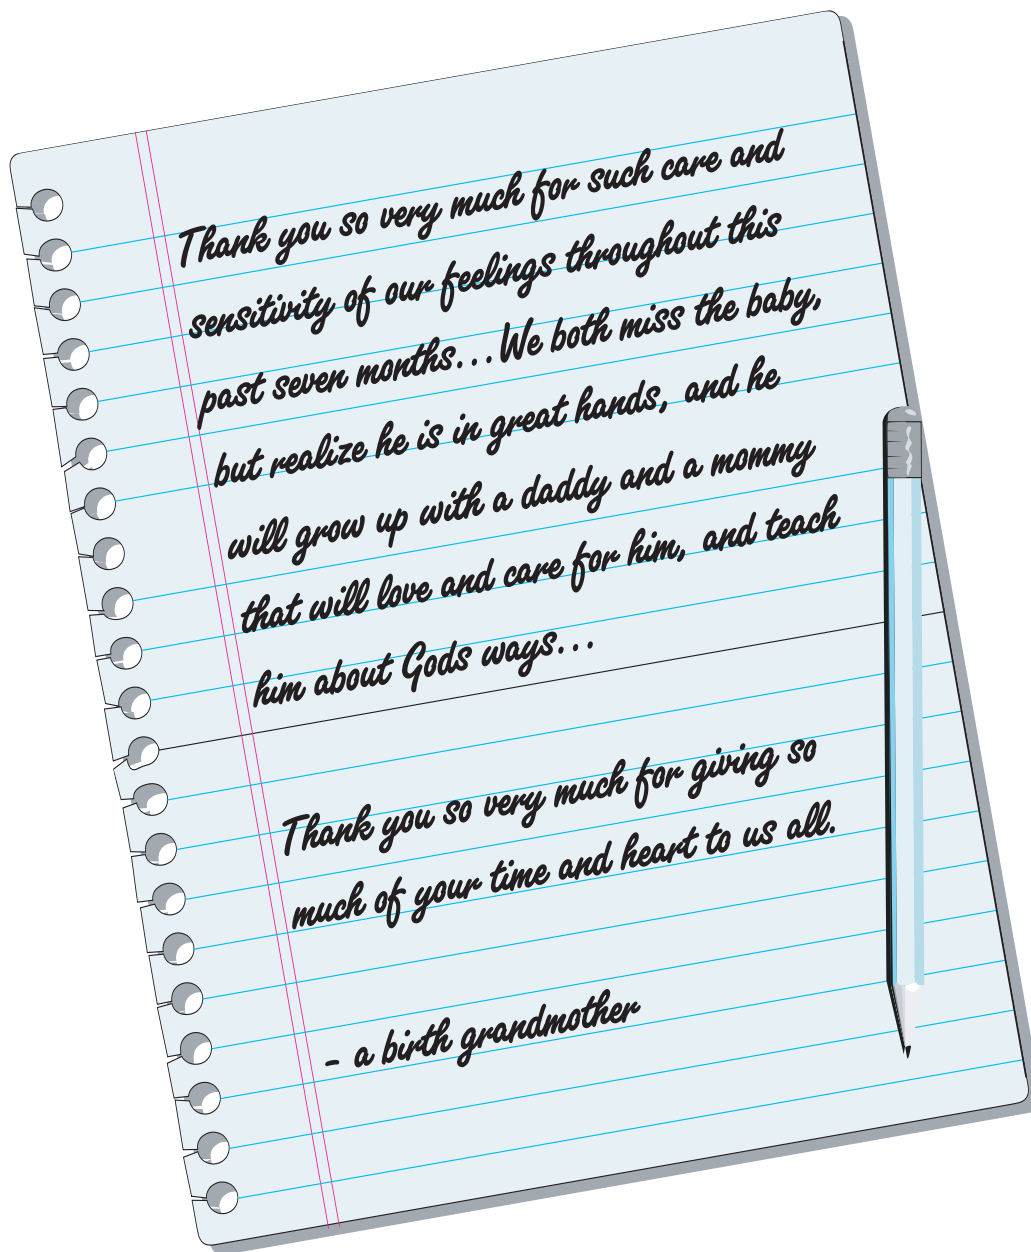 Thank you so very much for such care and
sensitivity of our feelings throughout this
past seven months...We both miss the baby,
but realize he is in great hands, and he
will grow up with a daddy and a mommy
that will love and care for him, and teach
him about Gods ways...
Thank you so very much for giving so
much of your time and heart to us all.
- a birth grandmother